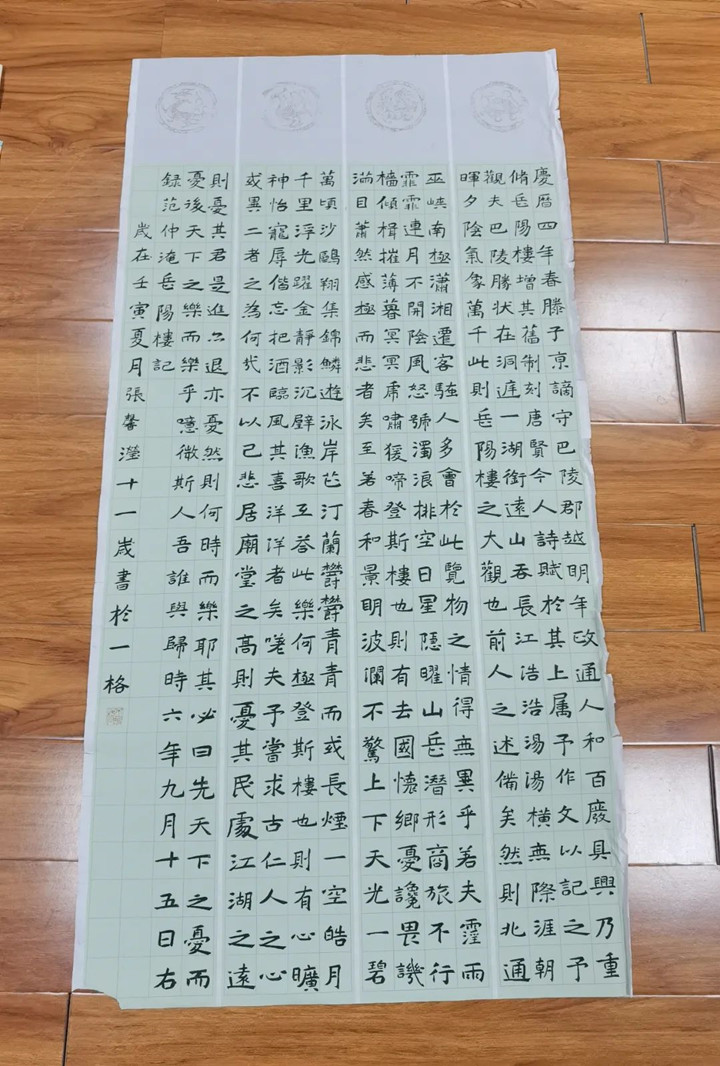 慶曆四年春滕子京謫守巴陵郡越明年政通人和百廢具興乃重
脩岳陽樓增其舊制刻唐賢今人詩賦於其上属予作文以記之予
觀夫巴陵勝狀在洞庭一湖銜遠山吞長江浩浩湯湯橫無際涯朝
暉夕陰氣象萬千此則岳陽樓之大觀也前人之述備矣然則北通
巫峽南極瀟湘遷客騷人多會於此覽物之情得無異乎若夫霪雨
霏霏連月不開陰風怒號濁浪排空日星隱曜山岳潛形商旅不行
檣傾楫摧薄暮冥冥虎嘯猨啼登斯樓也則有去國懷鄉憂讒畏譏
滿目蕭然感極而悲者矣至若春和景明波瀾不驚上下天光一碧
萬頃沙鷗翔集錦鱗遊泳岸芷汀蘭鬱鬱青青而或長煙一空皓月
千里浮光躍金靜影沉璧漁歌互答此樂何極登斯樓也則有心曠
神怡寵辱偕忘把酒臨風其喜洋洋者矣嗟夫予嘗求古仁人之心
或異二者之為何哉不以己悲居廟堂之高則憂其民處江湖之遠
則憂其君是進亦退亦憂然則何時而樂耶其必曰先天下之憂而
憂後天下之樂而樂乎噫微斯人吾誰與歸時六年九月十五日右
録范仲淹岳陽樓記
歲在壬寅夏月張馨瀅十一歲書於一格